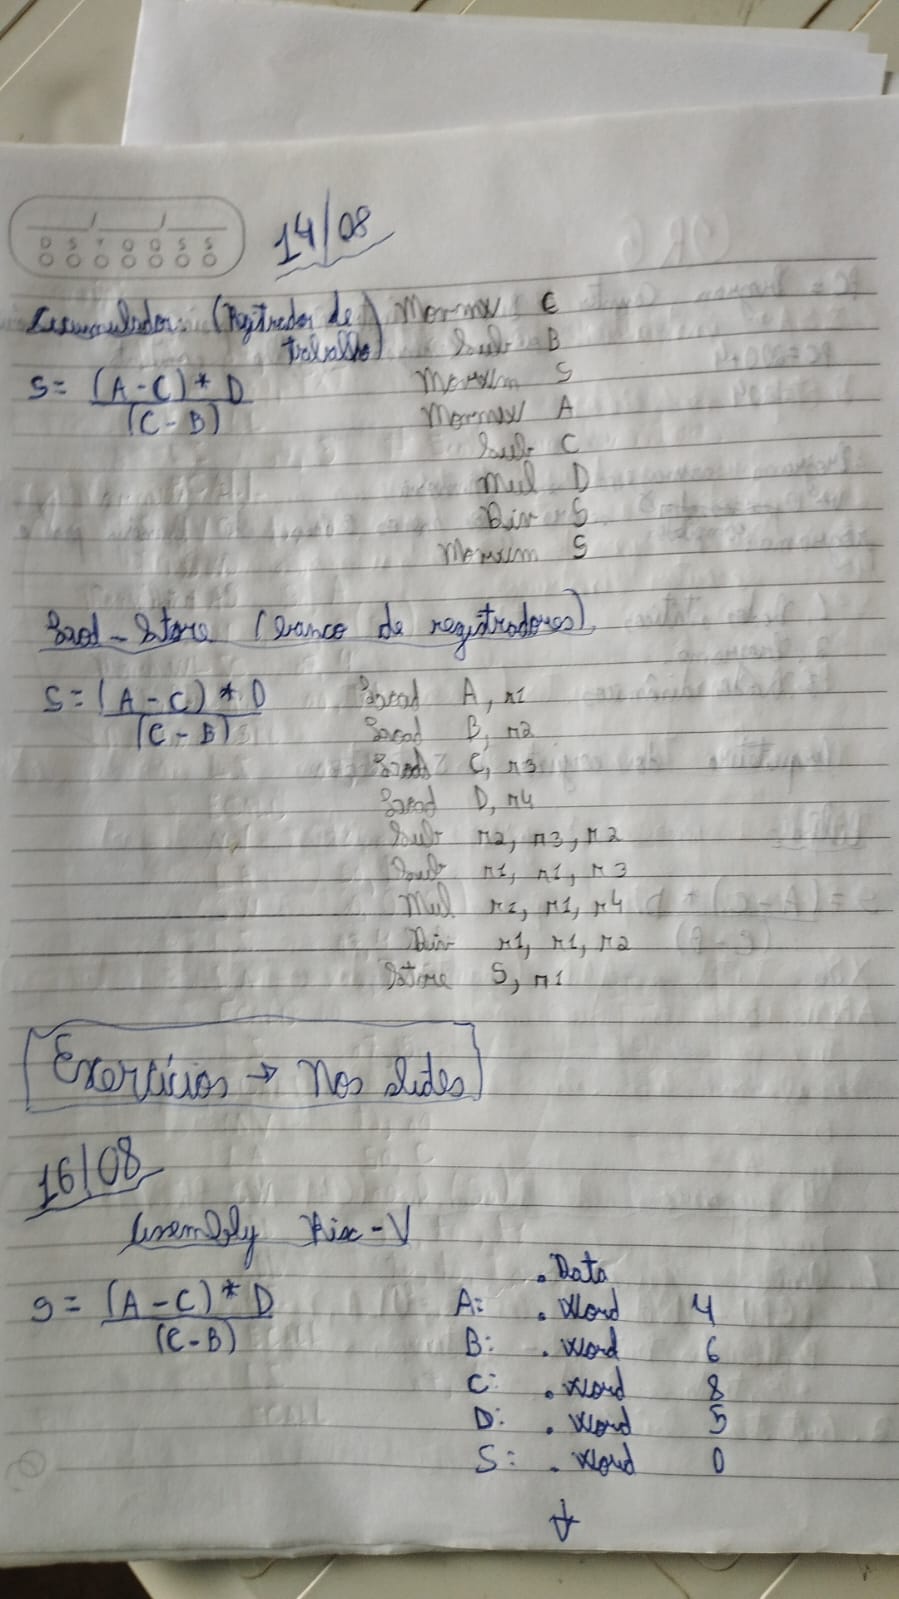 D S T Q Q S S
14/08
Acumulador: (Registrador de trabalho)
S = (A - C) * D
(C - B)
C
Sub B
S
A
Sub C
Mul D
Div S
S
Load - Store (banco de registradores)
S = (A - C) * D
(C - B)
Load A, r1
Load B, r2
Load C, r3
Load D, r4
Sub r2, r3, r2
Sub r1, r1, r3
Mul r1, r1, r4
Div r1, r1, r2
Store S, r1
Exercícios → Nos slides
16/08
Assembly Risc-V
S = (A - C) * D
(C - B)
.Data
A: .Word 4
B: .Word 6
C: .Word 8
D: .Word 5
S: .Word 0